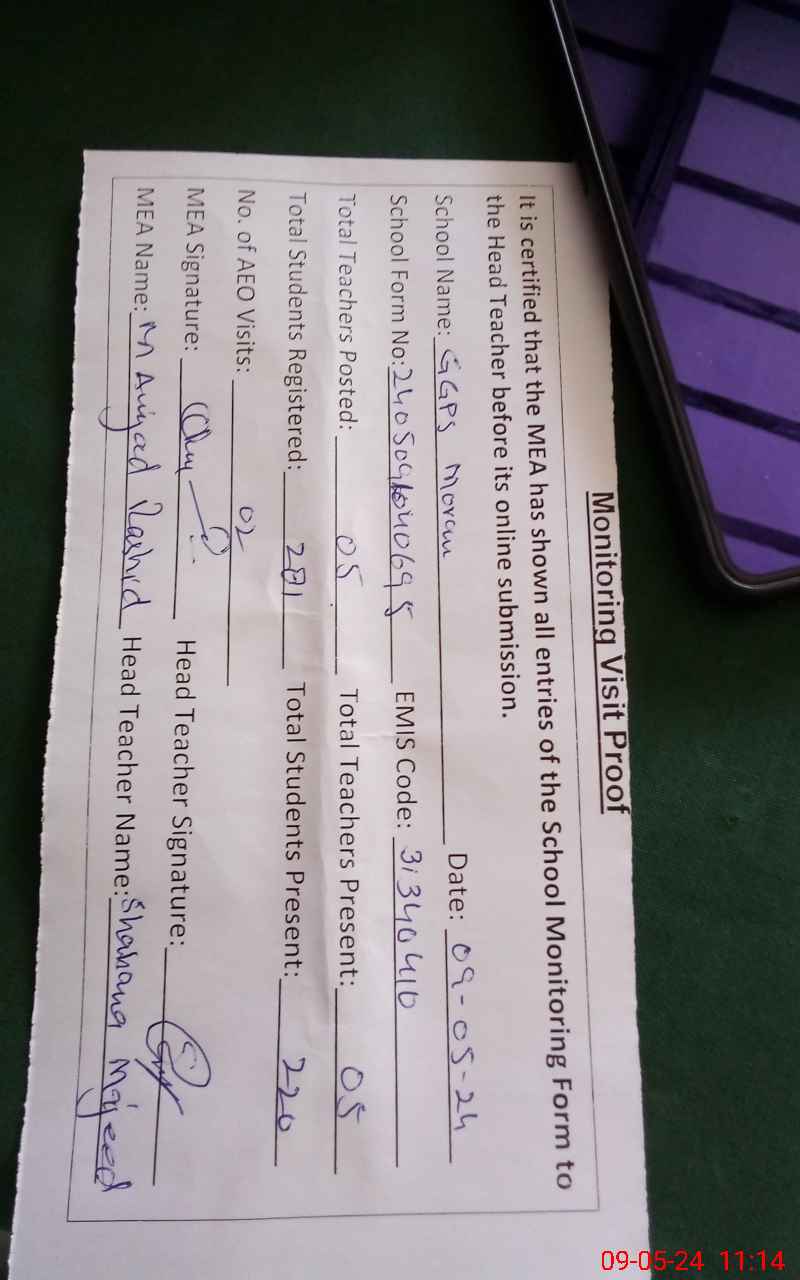 Monitoring Visit Proof
It is certified that the MEA has shown all entries of the School Monitoring Form to
the Head Teacher before its online submission.
School Name: GGPS Moran Date: 09-05-24
School Form No: EMIS Code: 31340410
Total Teachers Posted: 05 Total Teachers Present: 05
Total Students Registered: 281 Total Students Present: 220
No. of AEO Visits: 02
MEA Signature: Head Teacher Signature:
MEA Name: M Amjad Rashid Head Teacher Name: Shabana Majeed
09-05-24 11:14